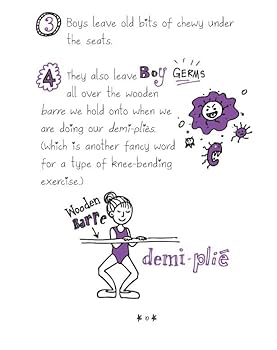 3 Boys leave old bits of chewy under
the seats.
4 They also leave BOY GERMS
all over the wooden
barre we hold onto when we
are doing our demi-pliés.
(which is another fancy word
for a type of knee-bending
exercise.)
Wooden
Barre
demi-plié